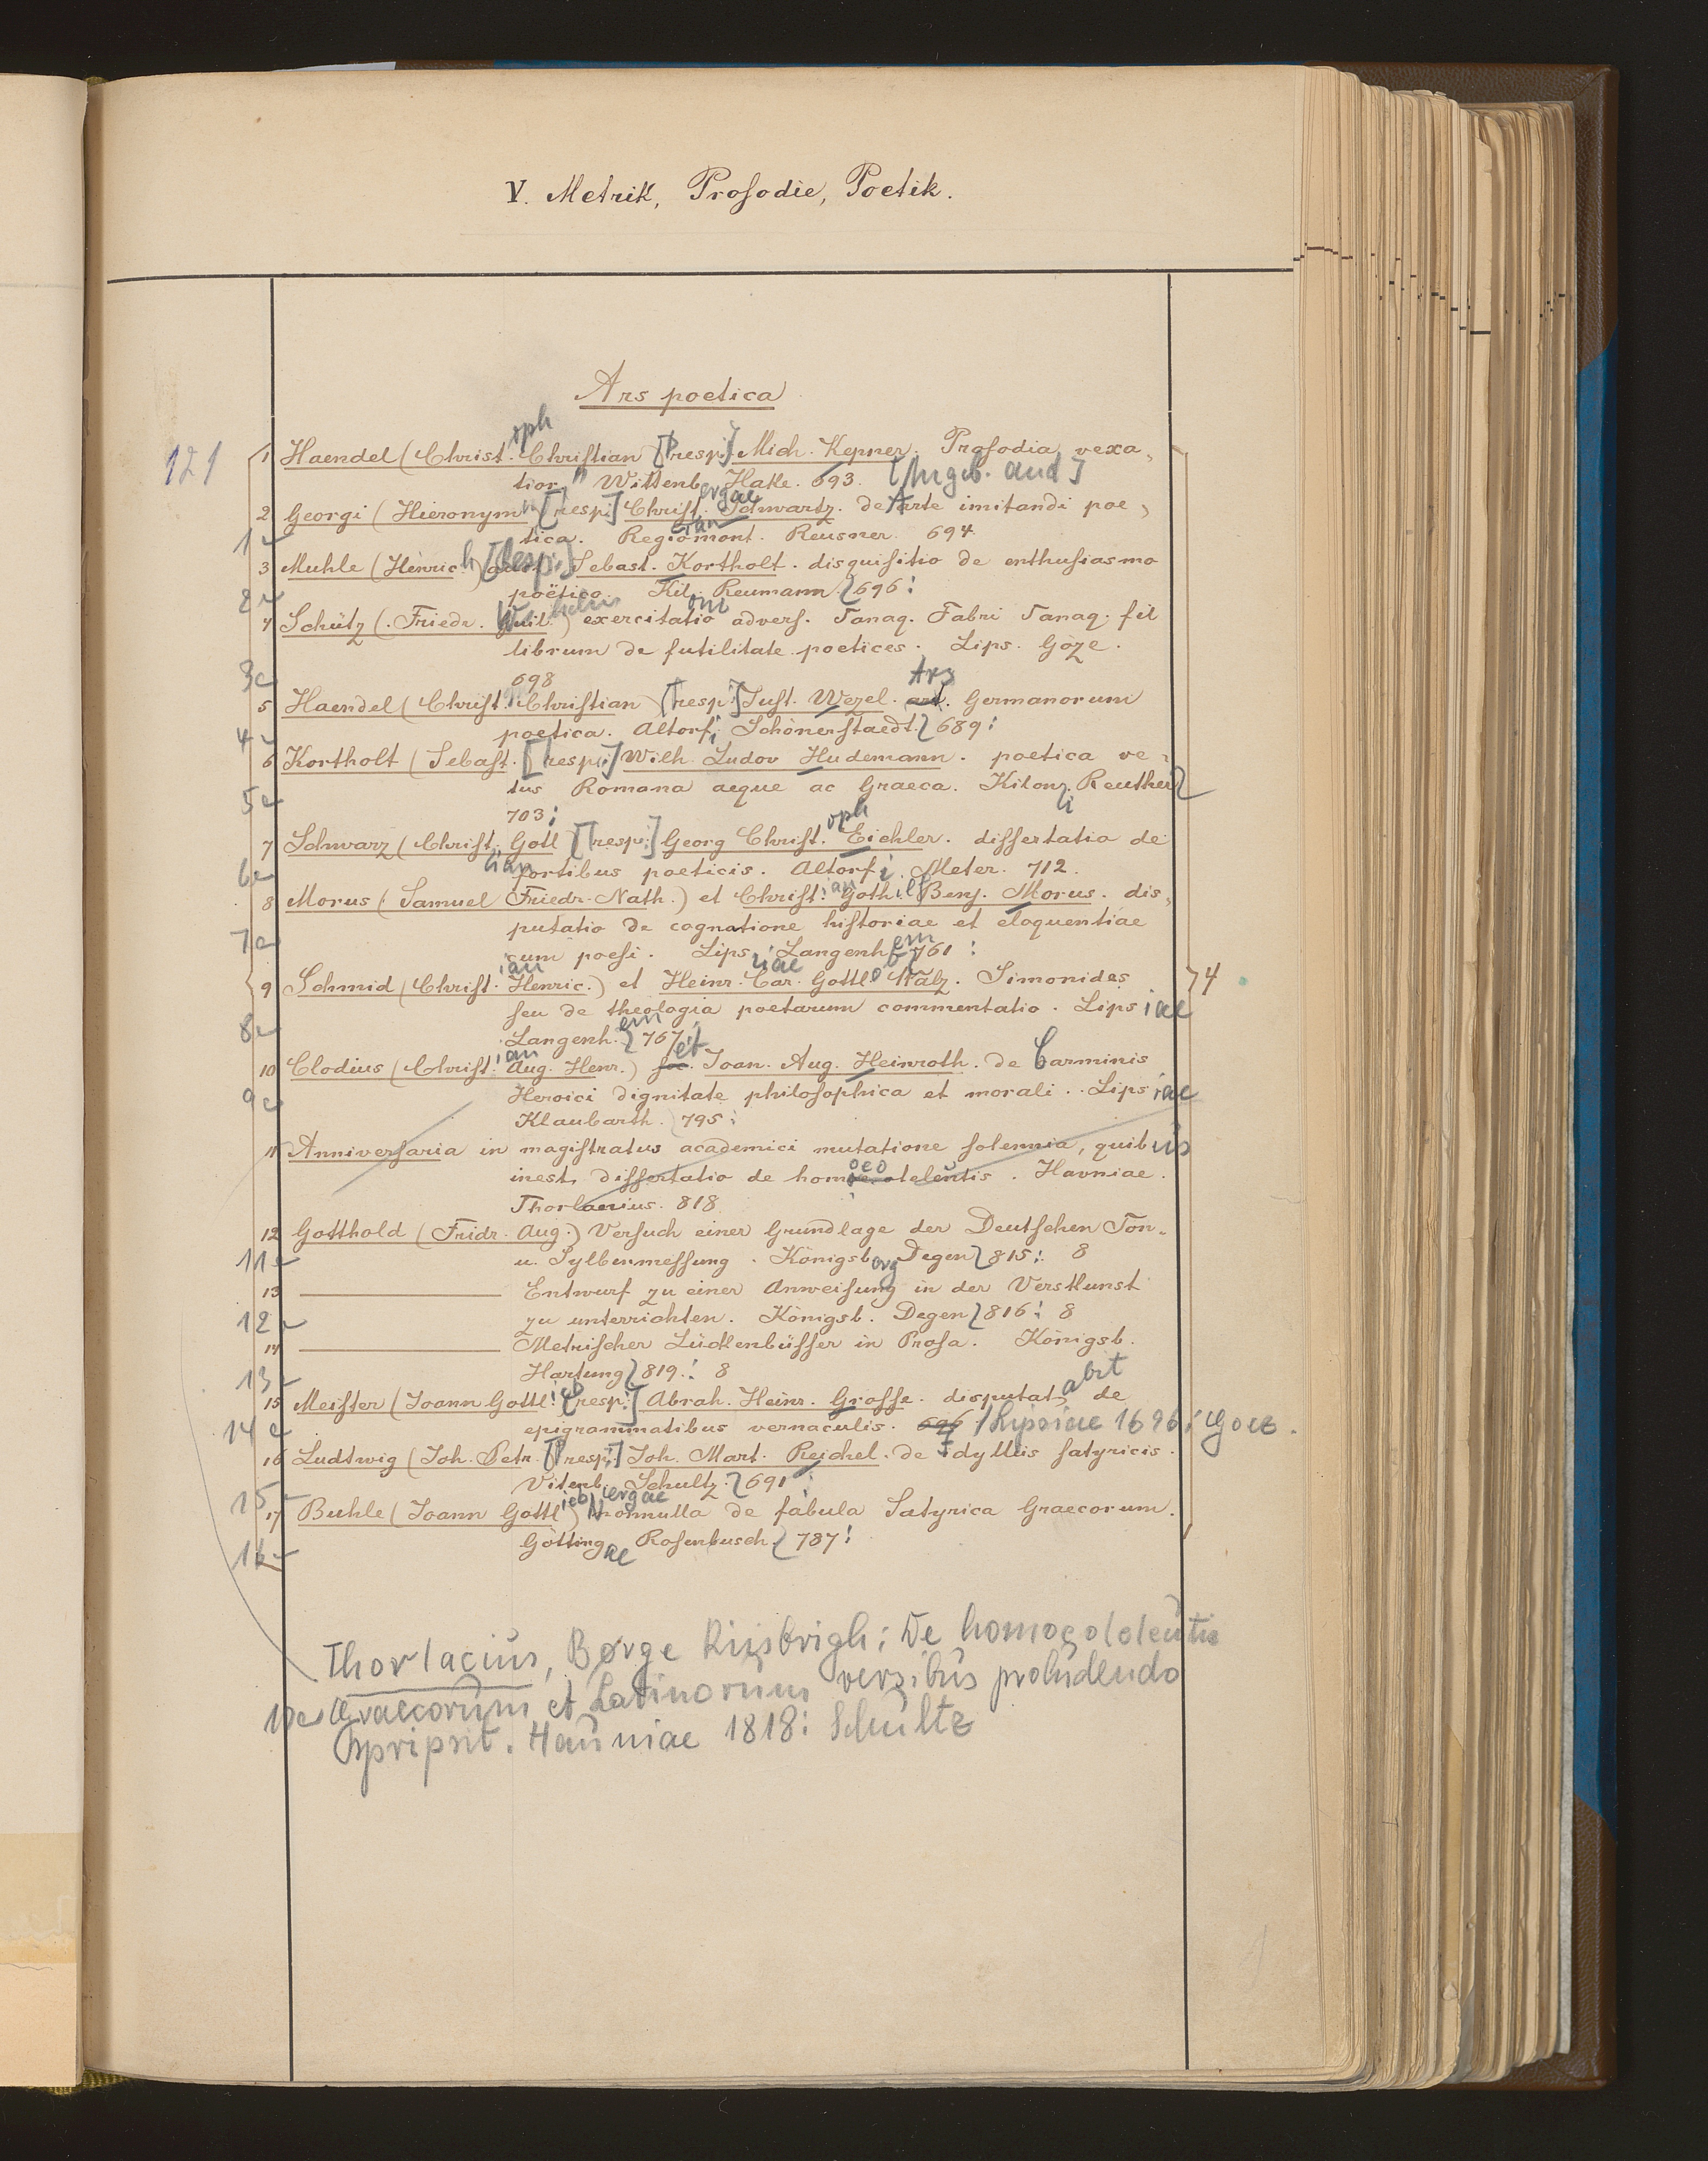 V. Metrik, Prosodie, Poetik.
Ars poetica
121
1 Haendel (Christoph. Christian [resp.] Mich. Kepner. Prosodia vexa-
tior. Wittenb. Hake. 693.
2 Georgi (Hieronym [resp.] Christian. Schwartz. de Arte imitandi poe-
tica. Regiomont. Reusner. 694
1
3 Muhle (Henrich) [Resp.] Sebast. Kortholt. disquisitio de enthusiasmo
poëtico. Kil. Reumann. 696:
2
4 Schütz (Friedr. Wilhelm) exercitatio advers. Tanaq. Fabri Tanaq. fil
librum de futilitate poetices. Lips. Göze.
698
3
5 Haendel (Christ. Christian) [resp.] Just. Wezel. Ars Germanorum
poetica. Altorfi Schönerstaedt. 689:
4
6 Kortholt (Sebast. [resp.] Wilh. Ludov Hudemann. poetica ve-
tus Romana aeque ac Graeca. Kiloni Reuther
703:
5
7 Schwarz (Christian Gotl [resp.] Georg Christoph. Eichler. dissertatio de
sortibus poeticis. Altorfi. Meter. 712.
6
8 Morus (Samuel Friedr. Nath.) et Christian Goth. Benj. Morus. dis-
putatio de cognatione historiae et eloquentiae
cum poesi. Lipsiae Langenhem 761:
7
9 Schmid (Christian Henric.) et Heinr. Car. Gottlob Wälz. Simonides
seu de theologia poetarum commentatio. Lipsiae
Langenhem 767.
4
8
10 Clodius (Christian Aug. Henr.) et Joan. Aug. Heinroth. de Carminis
Heroici dignitate philosophica et morali. Lipsiae
Klaubarth. 795:
9
11 Anniversaria in magistratus academici mutatione solennia, quibus
inest dissertatio de homoeoteleutis. Havniae.
Thorlacius. 818
12 Gotthold (Fridr. Aug.) Versuch einer Grundlage der Deutschen Ton-
u. Sylbenmessung. Königsberg Degen 815: 8
11
13 Entwurf zu einer Anweisung in der Verskunst
zu unterrichten. Königsb. Degen 816: 8
12
14 Metrischer Lückenbüsser in Prosa. Königsb.
Hartung 819: 8
13
15 Meister (Joann Gottlieb [resp.] Abrah. Heinr. Grosse. disputabit de
epigrammatibus vernaculis. 696 Lipsiae 1696: Goez.
14
16 Ludtwig (Joh. Petr. [resp.] Joh. Mart. Reichel. de Idyllis satyricis.
Vitenbergae Schultz. 691:
15
17 Buhle (Joann Gottlieb) Nonnulla de fabula Satyrica Graecorum.
Göttingae Rosenbusch. 787:
16
Thorlacius, Børge Riisbrigh: De homoeoteleutis
10 Graecorum et Latinorum versibus proludendo
. Hauniae 1818: Schultz